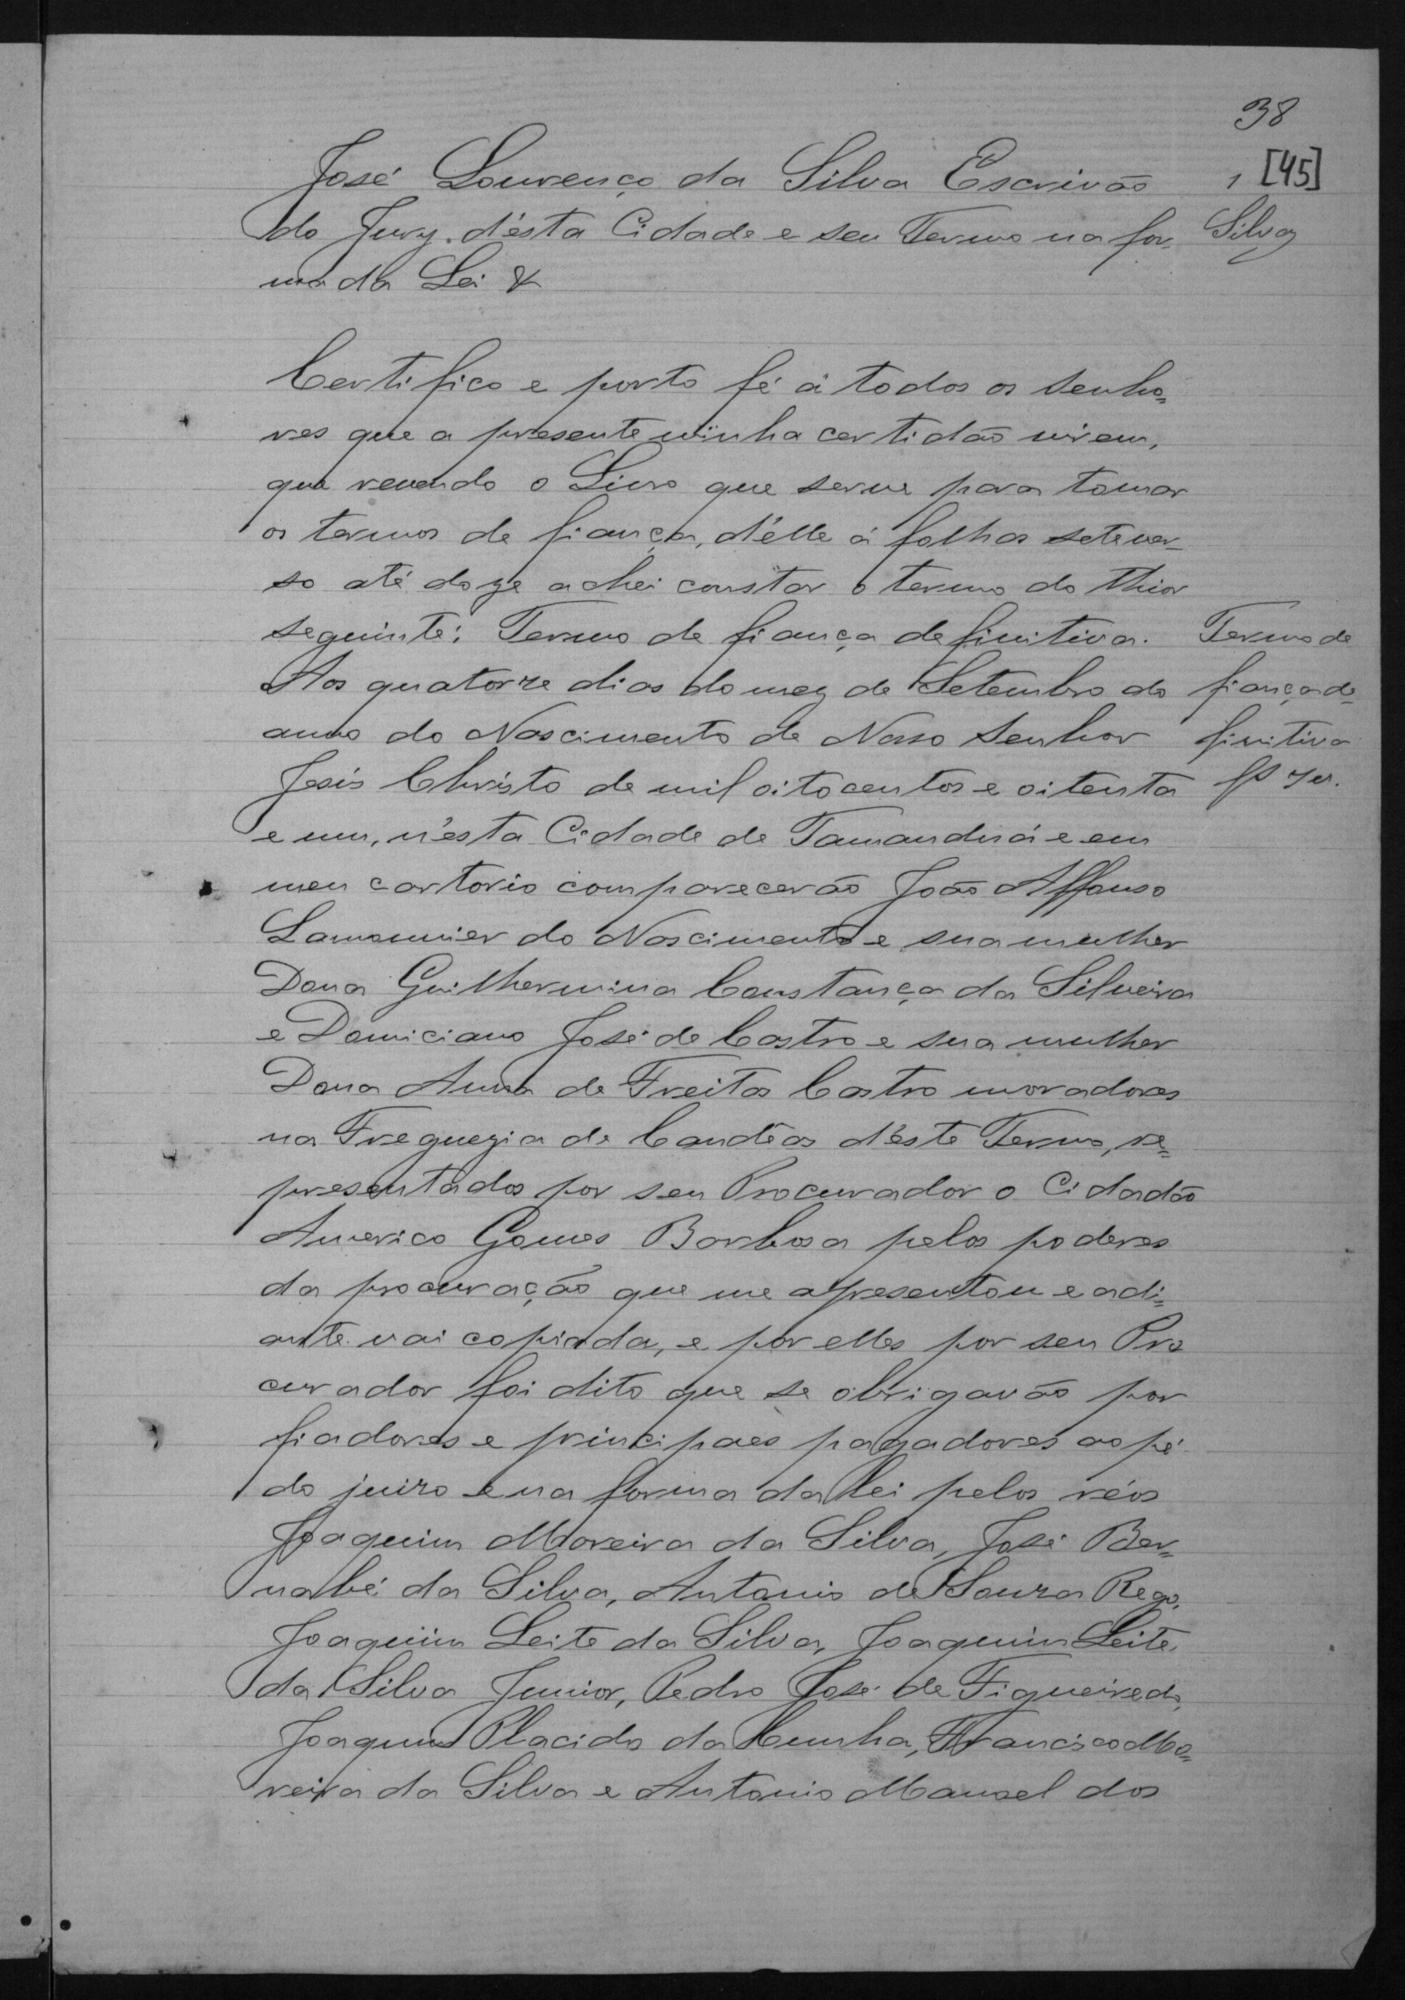 38
1 [45]
José Lourenço da Silva Escrivão
do Jury d'ésta Cidade e seu Termo na for-
ma da Lei &
Silva
Certifico e porto fé á todos os senho=
res que a presente minha certidão virem,
que revendo o Livro que serve para tomar
os termos de fiança, d'élle á folhas sete ver-
so até doze achei constar o termo do theor
seguinte: Termo de fiança definitiva.
Aos quatorze dias do mez de Setembro do
anno do Nascimento de Nosso Senhor
Jesús Christo de mil oitocentos e oitenta
e um, n'ésta Cidade de Tamanduá e em
meu cartorio comparecerão João Affonso
Lamounier do Nascimento e sua mulher
Dona Guilhermina Constança da Silveira
e Domiciano José de Castro e sua mulher
Dona Anna de Freitas Castro moradores
na Freguezia de Candêas d'éste Termo, re=
presentados por seu Procurador o Cidadão
Americo Gomes Barbosa pelos poderes
da procuração que me apresentou e adi=
ante vai copiada, e por elles por seu Pro
curador foi dito que se obrigavão por
fiadores e principaes pagadores ao pé
do juizo e na forma da lei pelos réos
Joaquim Moreira da Silva, José Ber=
nabé da Silva, Antonio de Souza Rego,
Joaquim Leite da Silva, Joaquim Leite
da Silva Junior, Pedro José de Figueiredo,
Joaquim Placido da Cunha, Francisco Mo=
reira da Silva e Antonio Manoel dos
Termo de
fiança de=
finitiva
fs 7 v.